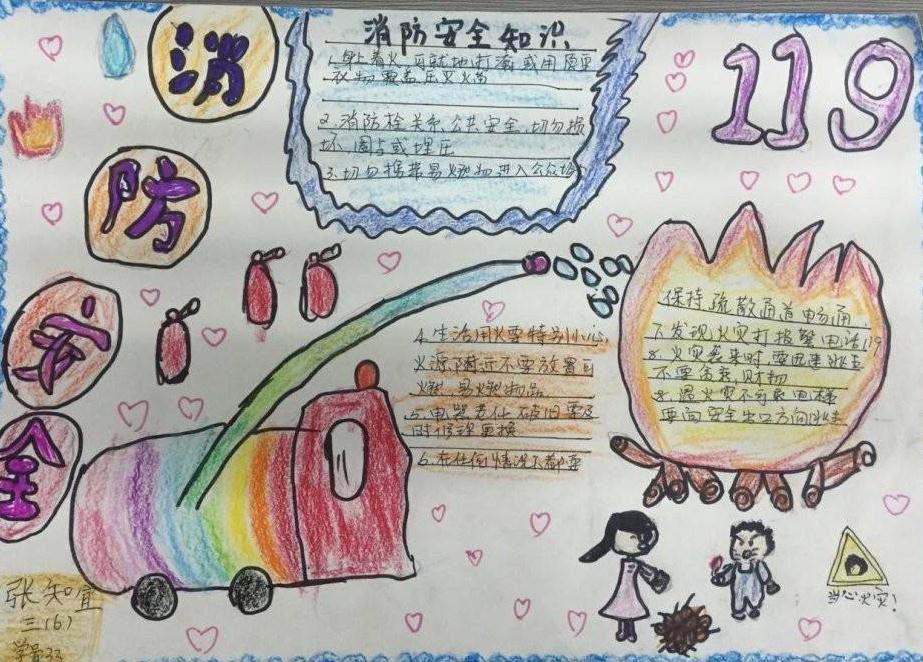 消
防
安
全
消防安全知识
1.身上着火,可就地打滚,或用厚重
衣物覆盖压灭火苗
2.消防栓关系公共安全,切勿损
坏、圈占或埋压
3.切勿携带易燃物进入公众场
119
4.生活用火要特别小心,
火源附近不要放置可
燃、易燃物品
5.电器老化破旧要及
时修理更换
6.在任何情况下都要
保持疏散通道畅通
7.发现火灾打报警电话119
8.火灾袭来时,要迅速逃生
不要贪恋财物
8.遇火灾不可乘电梯
要向安全出口方向逃生
当心火灾!
张知宜
三(6)
学号33